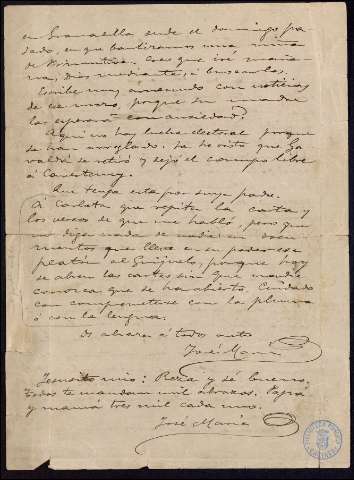 en Granadella desde el domingo pa-
sado, en que bautizamos una
de Creo que iré maña-
na, Dios mediante, á buscarlas.
Escribe muy amenudo con noticias
de ese mozo, porque su madre
las espera con ansiedad.
Aquí no hay lucha electoral porque
se han arreglado. Ya he visto que Ga
se retiró y dejó el campo libre
á
Que tenga esta por suya padre.
Á Carlota que repiter la carta y
los versos de que me habló, pero que
no diga nada de nadie en docu
mentos que lleve en su poder ese
platón al porque hoy
se abren las cartas sin que nadie
conozca que se ha abierto. Cuidado
con comprometerse con la pluma
ó con la lengua.
Os abraza á todos vuestro
José María
Jesusito mio: Reza y sé bueno.
Todos te mandan mil abrazos. Papá
y mamá tres mil cada uno.
José María